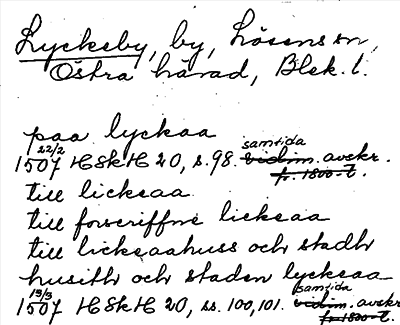 Lyckeby, by, Lösens sn,
Östra härad, Blek. l.
paa lyckaa
22/2
1507 HSkH 20, s. 98. samtida vidim. avskr.
fr. 1800-t.
till lickaa
till forscriffne lickaa
till lickaahuss och stadh
husith och staden lyckaa
13/3
1507 HSkH 20, ss. 100, 101. samtida vidim. avskr.
fr. 1800-t.